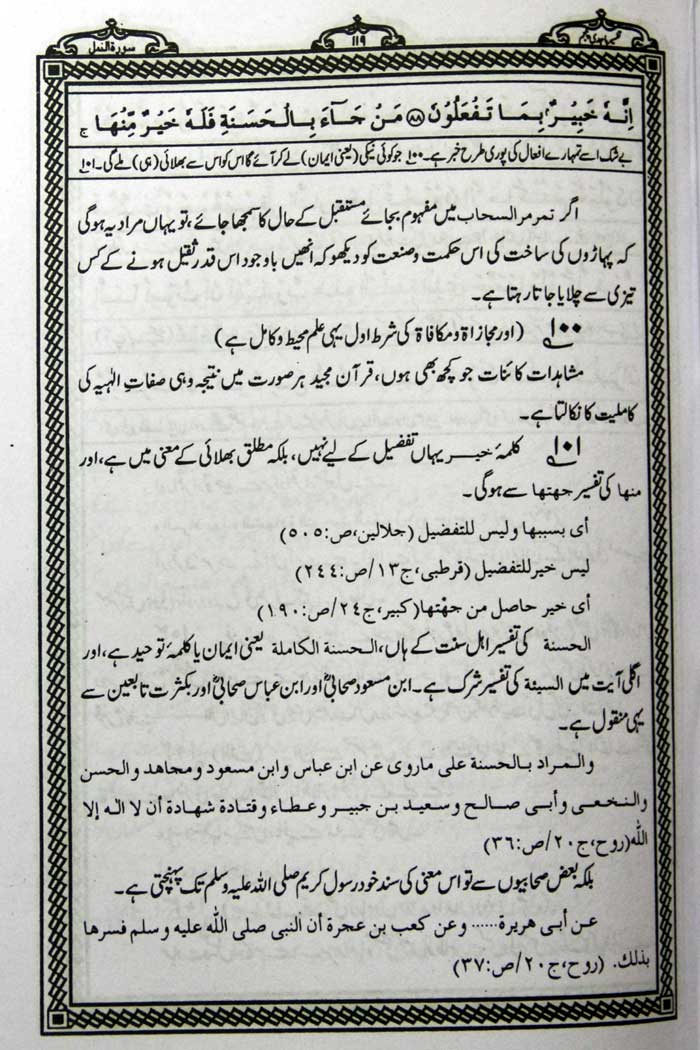 تفسیر ماجدی پنجم
۱۱۹
سورۃ النمل
اِنَّهٗ خَبِيْرٌۢ بِمَا تَفْعَلُوْنَ ﴿۸۸﴾ مَنْ جَآءَ بِالْحَسَنَةِ فَلَهٗ خَيْرٌ مِّنْهَا ج
بے شک اسے تمہارے افعال کی پوری طرح خبر ہے۔ ۱۰۰ جو کوئی نیکی (یعنی ایمان) لے کر آئے گا اس کو اس سے بھلائی (ہی) ملے گی۔ ۱۰۱
اگر تمر مر السحاب میں مفہوم بجائے مستقبل کے حال کا سمجھا جائے، تو یہاں مراد یہ ہوگی
کہ پہاڑوں کی ساخت کی اس حکمت و صنعت کو دیکھو کہ انھیں باوجود اس قدر ثقیل ہونے کے کس
تیزی سے چلایا جاتا رہتا ہے۔
۱۰۰ (اور مجازاۃ و مکافاۃ کی شرط اول یہی علم محیط و کامل ہے)
مشاہدات کائنات جو کچھ بھی ہوں، قرآن مجید ہر صورت میں نتیجہ وہی صفاتِ الٰہیہ کی
کاملیت کا نکالتا ہے۔
۱۰۱ کلمۂ خیر یہاں تفضیل کے لیے نہیں، بلکہ مطلق بھلائی کے معنی میں ہے، اور
منھا کی تفسیر جھتھا سے ہوگی۔
أی بسببها ولیس للتفضیل (جلالین، ص:۵۰۵)
لیس خیر للتفضیل (قرطبی، ج۱۳/ص:۲۴۴)
أی خیر حاصل من جهتها (کبیر، ج۲۴/ص:۱۹۰)
الحسنة کی تفسیر اہل سنت کے ہاں، الحسنة الکاملة یعنی ایمان یا کلمۂ توحید ہے، اور
اگلی آیت میں السیئة کی تفسیر شرک ہے۔ ابن مسعود صحابیؓ اور ابن عباس صحابیؓ اور بکثرت تابعین سے
یہی منقول ہے۔
والمراد بالحسنة علی ماروی عن ابن عباس وابن مسعود ومجاهد والحسن
والنخعی وأبی صالح وسعید بن جبیر وعطاء وقتادة شهادة أن لا اله إلا
الله (روح، ج۲۰/ص:۳۶)
بلکہ بعض صحابیوں سے تو اس معنی کی سند خود رسول کریم صلی اللہ علیہ وسلم تک پہنچتی ہے۔
عن أبی هریرة...... وعن کعب بن عجرة أن النبی صلی الله علیه وسلم فسرها
بذلك. (روح، ج۲۰/ص:۳۷)